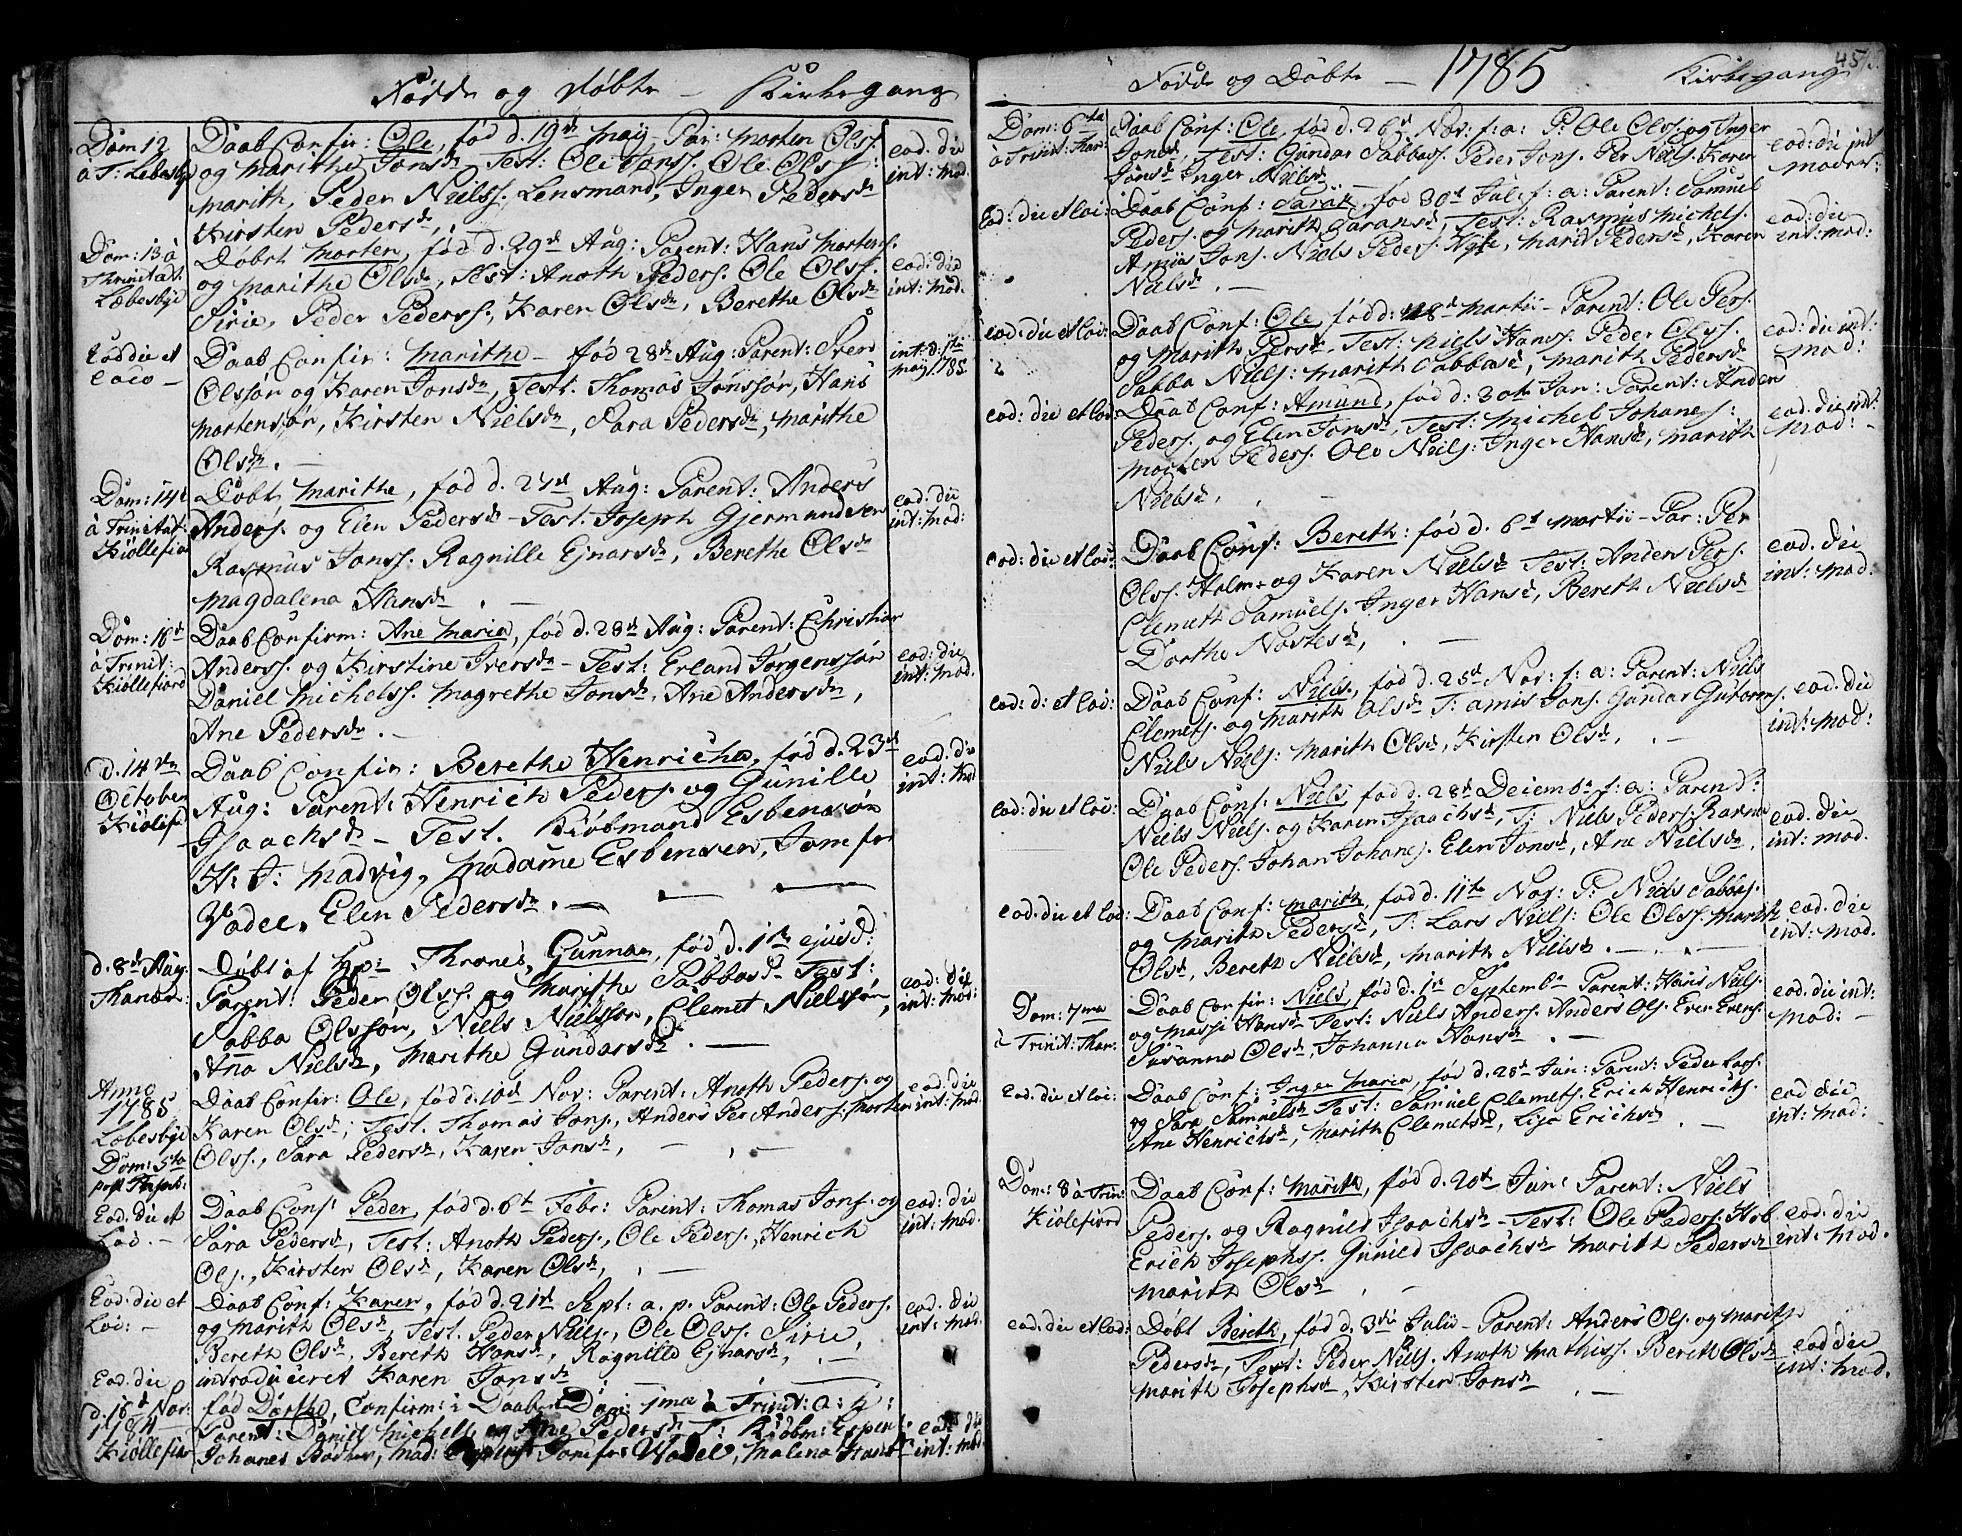 Fødde og døbte — Kirkegang
Dom 12
à T: Lebesby
Daab Confir: Ole, fød d. 19de May, Par: Morten Olss.
og Marithe Jonsdr Test: Ole Jonss. Ole Olss:
Marith, Peder Nielss. Lensmand, Inger Pedersdr
Kirsten Pedersdr, . —
eod: die
int: mod.
Dom: 13 à
Thrinitat:
Læbesbye
Døbt Morten, fød d. 29de Aug: Parent: Hans Mortens.
og Marithe Olsdr, Test: Anoth Peders. Ole Olss.
Sirie, Peder Pederss, Karen Olsdr, Berethe Olsdr
eod: die
int: mod.
Eod die et
Loco —
Daab Confir: Marithe — fød 28de Aug: Parent: Iver
Olssøn og Karen Jonsdr, Test: Thomas Jonssøn, Hans
Mortensøn, Kirsten Nielsdr, Sara Pedersdr, Marithe
Olsdr. —
int: d. 1te
May 1785
Dom: 14de
à Trinitat:
Kiøllefior
Døbt Marithe, fød d. 27de Aug: Parent: Anders
Anders. og Elen Pedersdr — Test. Joseph Gjermundsen
Rasmus Jonss. Ragnille Ejnarsdr, Berethe Olsdr
Magdalena Hansdr . —
eod: die
int: mod:
Dom: 18de
à Trinit:
Kiøllefiord
Daab Confirm: Ane Maria, fød d. 28de Aug: Parent: Christian
Anderss. og Kirstine Iversdr — Test: Erland Jørgenssøn
Daniel Michelss. Magrethe Jonsdr, Ane Andersdr,
Ane Pedersdr. —
eod: die
int: mod.
d. 14den
October
Kiølefior
Daab Confir: Berethe Henricha, fød d. 23de
Aug: Parent: Henrich Peders. og Gunille
Isaachsdr — Test. Kiøbmand Esbensøn
H: J: Madvig, Madame Esbensen, Jomfr
Vadel, Elen Pedersdr. — — —
eod. die
int: Mod
d. 8de Aug.
Thanen.
Døbt af Hr: Thrones, Gunnar, fød d. 1te ejusd:
Parent: Peder Olss. og Marithe Sabbasdr Test:
Sabba Olssøn, Niels Nielssøn, Clemet Nielssøn,
Ana Nielsdr, Marithe Gundarsdr. —
eod: die
int: mod:
Anno
1785
Lebesbye
Dom: 5ta
post
Daab Confir: Ole, fød d. 10de Nov: Parent: Anoth Peders. og
Karen Olsdr; Test. Thomas Jons, Anders Per Anders, Morten
Olss., Sara Pedersdr, Karen Jonsdr, — , —
eod: die
int: mod
Eod: die et
Lod. —
Daab Conf: Peder, fød d. 6t Febr: Parent: Thomas Jons. og
Sara Pedersdr, Test: Anoth Peders., Ole Peders., Henrich
Ols., Kirsten Olsdr, Karen Olsdr, . —
eod: die
int: mod.
Eod: die et
Loi: —
Daab Conf: Karen, fød d. 21de Sept: a. p. Parent: Ole Peders.
og Marith Olsdr Test. Peder Niels., Ole Olss. Sirie,
Bereth Olsdr, Bereth Hansdr, Ragnille Ejnarsdr, . —
eod. die
int: mod
Eod: die
introduceret Karen Jonsdr
d. 16t Nov:
1784
Kiøllefior
fød Dorthe, Confirm: i Daaben Dom: 1ma à Trinit: a: p:
Parent: Daniel Michels. og Ane Pedersdr T: Kiøbm: Espens.
Johanes Bødker, Mad: Jomfr Wadel, Malena Hansdr
eod: die
int: mod.
Fødde og Døbte — 1785 Kirkegang
45
Dom: 6ta
à Trinit: Than:
Daab Conf: Ole, fød d. 26t Nov: f: a: P: Ole Olss. og Inger
Jonsd, Test: Gundar Sabbas. Peder Jons. Per Niels. Karen
Jonsd Inger Nielsd
eod: die int
moder:
Eod: die et Loi:
Daab Conf: Sarak, fød 30t Juli f: a: Parent: Samuel
Peders. og Marith Garansd, Test: Rasmus Michels.
Amus Jons. Niels Peders. Nye, Marit Pedersd, Karen
Nielsd . —
eod: die
int: mod:
eod: die et Loi:
Daab Conf: Ole, fød d: 18d Martii — Parent: Ole Pers.
og Marith Persd, Test. Niels Hans. Peder Olss.
Sabba Niels: Marith Sabbasd, Marith Pedersd
eod: die int:
mod:
eod: die et Loi:
Daab Conf: Amund, fød d: 30te Jan: Parent: Anders
Peders. og Elen Jonsd, Test: Michel Johanes:
Morten Peders. Ole Niels: Inger Hansd, Marith
Nielsd, . —
eod. die int:
mod: —
eod: die et Loi:
Daab Conf: Bereth: fød d. 6t Martii — Par: Per
Olss. Holm og Karen Nielsd Test: Anders Pers.
Clemett Samuels. Inger Hansd, Bereth Nielsd
Dorthe Nostesd, . —
eod. die
int: mod.
eod: d: et Loi:
Daab Conf: Niels, fød d. 25t Nov: f: a: Parent: Niels
Clemets. og Marith Olsd T: Amis Jons. Gundar Gutorms.
Niels Niels: Marith Olsd, Kirsten Olsd, . —
eod. die
int: mod:
eod: die et Loi:
Daab Conf: Niels fød d. 28d Decembr f: a: Parend:
Niels Niels. og Karen Isaachsd, T: Niels Peders: Karna
Ole Peders. Johan Johanes. Elen Jonsd, Ane Nielsdr.
eod: die
int: mod.
eod. die et Lod:
Daab Conf: Marith, fød d. 11te Nov: P: Niels Sabbas.
og Marith Pedersd, T: Lars Niels: Ole Olss. Marith
Olsd, Bereth Nielsd, Marith Nielsd . — . —
eod. die
int: mod.
Dom: 7ma
à Trinit: Than.
Daab Confir: Niels, fød d. 1te Septembr Parent: Hans Niels.
og Massi Hansd Test: Niels Anders. Anders Ols. Even Evens.
Susanna Olsd, Johanna Hansd . —
eod: die int:
mod: —
Eod. die et loi:
Daab Conf: Inger Maria, fød d. 28t Jan: Parent: Peder Lars.
og Sara Samuelsd Test: Samuel Clemets. Erich Henrichs.
Ane Henrichsd, Marith Clemetsd, Lisa Erichsd . —
eod die
int: mod:
Dom: 8 à Trin:
Kiølefiord
Daab Conf: Marith, fød d. 20t Jun: Parent: Niels
Peders. og Ragnild Isaachsd — Test: Ole Peders. Hob
Erich Josephs. Gunild Isaachsd Marith Pedersd
Marith Olsd . —
eod. die
int: mod.
eod. die et Lod:
Døbt Bereth, fød d. 3die Julii — Parent: Anders Ols. og Marith
Pedersd, Test: Peder Niels. Anoth Mathiss. Bereth Olsd
Marith Josephsd, Kirsten Jonsd . —
eod die
int: mod.